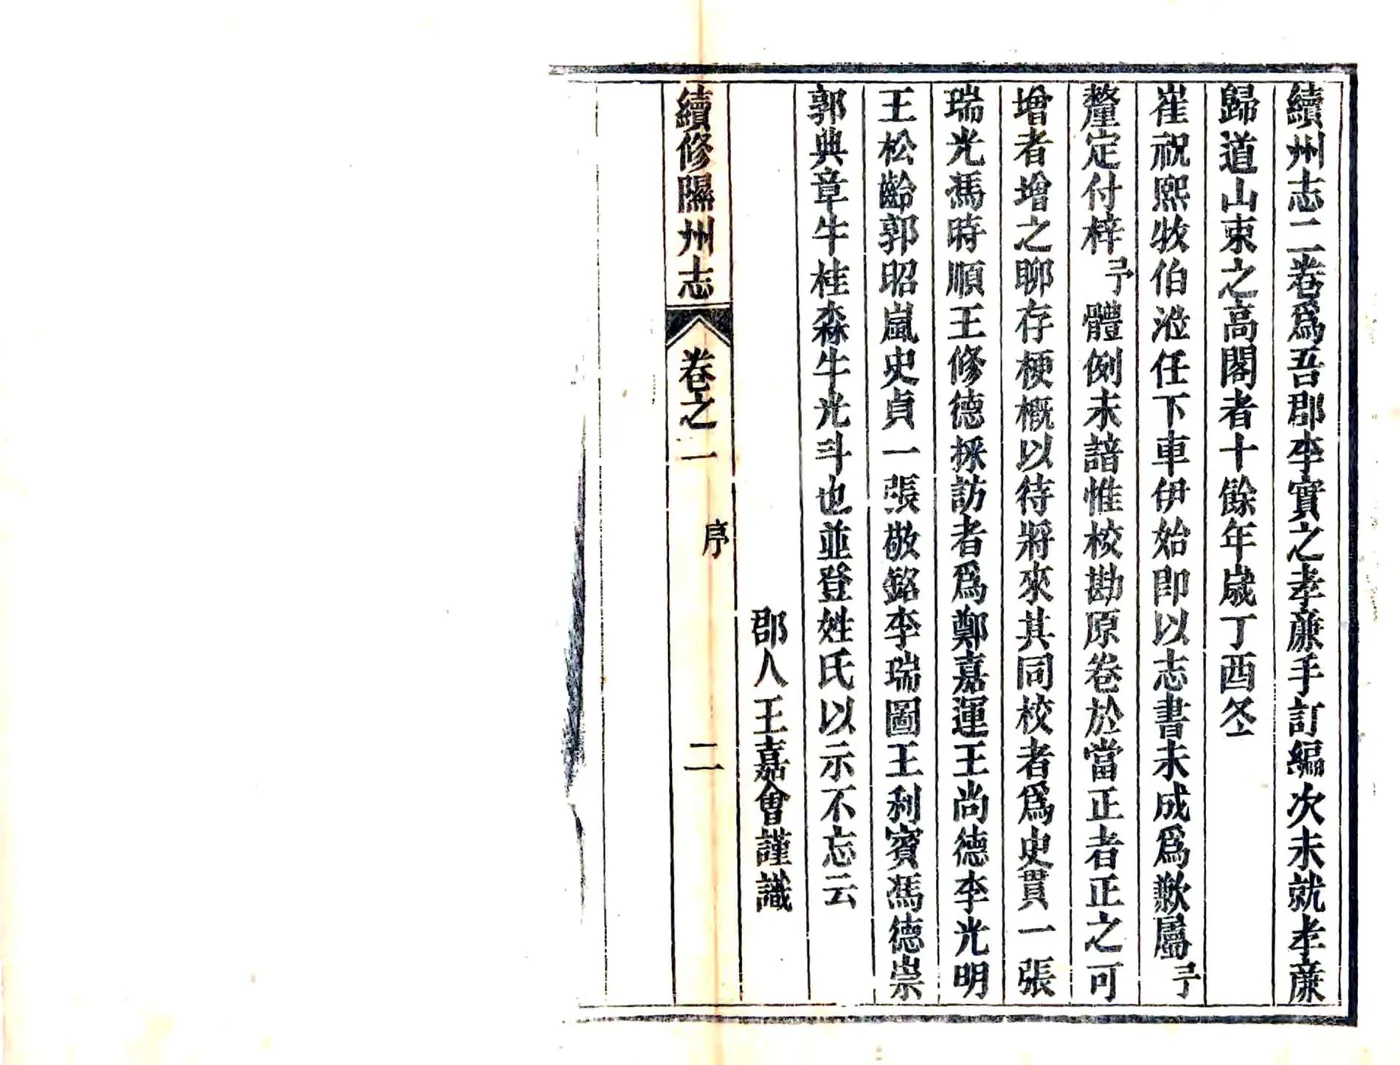 續州志二卷爲吾郡李實之孝亷手訂編次未就孝亷
歸道山束之高閣者十餘年歲丁酉冬
崔祝熙牧伯涖任下車伊始卽以志書未成爲歉屬予
釐定付梓予體例未諳惟校勘原卷於當正者正之可
增者增之聊存梗概以待將來其同校者爲史貫一張
瑞光馮時順王修德採訪者爲鄭嘉運王尚德李光明
王松齡郭昭嵐史貞一張敬銘李瑞圖王利賓馮德崇
郭典章牛桂森牛光斗也並登姓氏以示不忘云
郡人王嘉會謹識
續修隰州志 卷之一 序 二